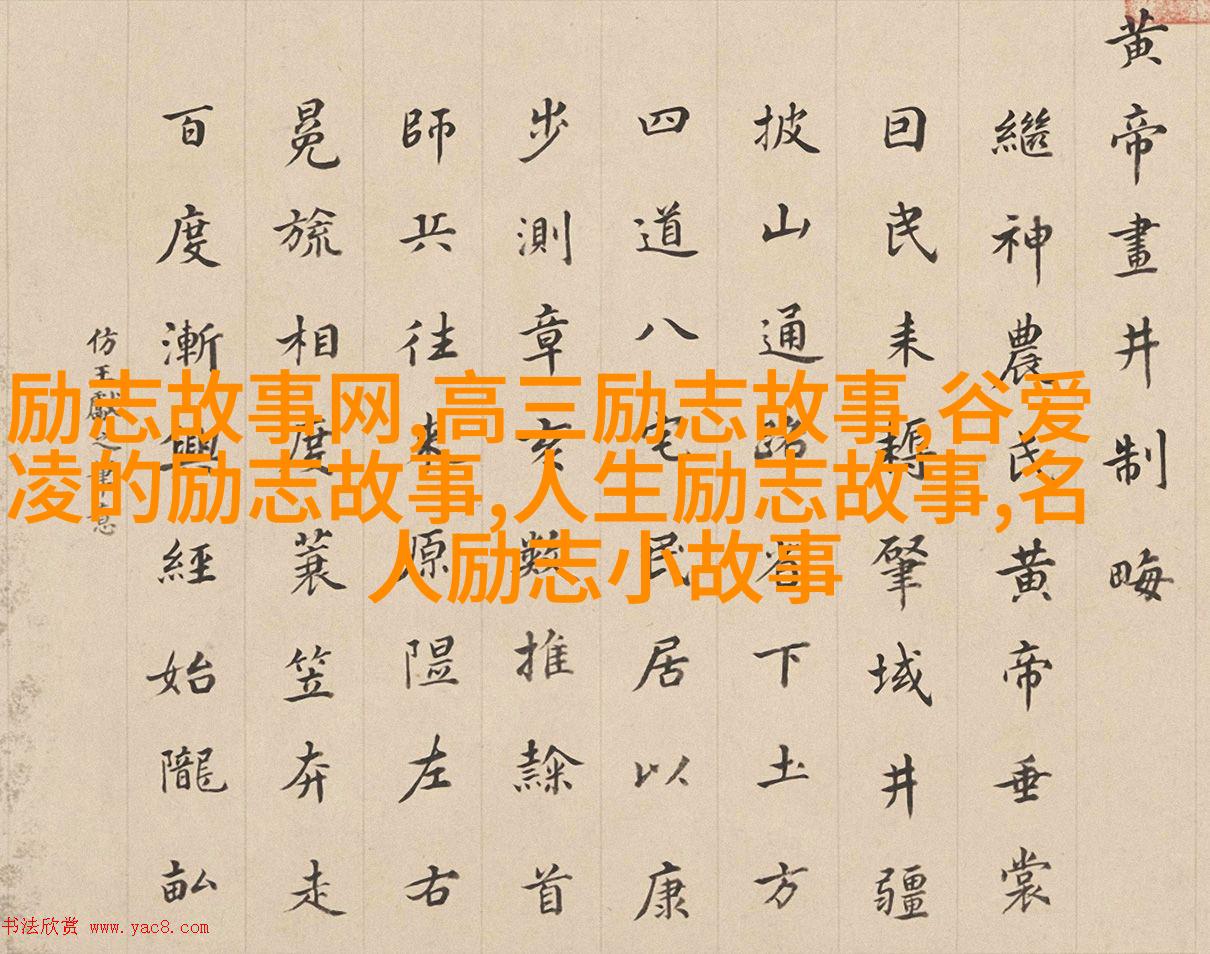 黄帝畫井制畮
繼神農氏黄帝垂裳
囙民耒耨肇域井疆
披山通路省下土方
四道八宅民居以康
步測章亥數推隸首
師兵往來原隰左右
冕旒相度蓑笠奔走
百度漸興經始隴畝
仿王獻之筆意
励志故事网,高三励志故事,谷爱
凌的励志故事,人生励志故事,名
人励志小故事
书法欣赏 www.yac8.com